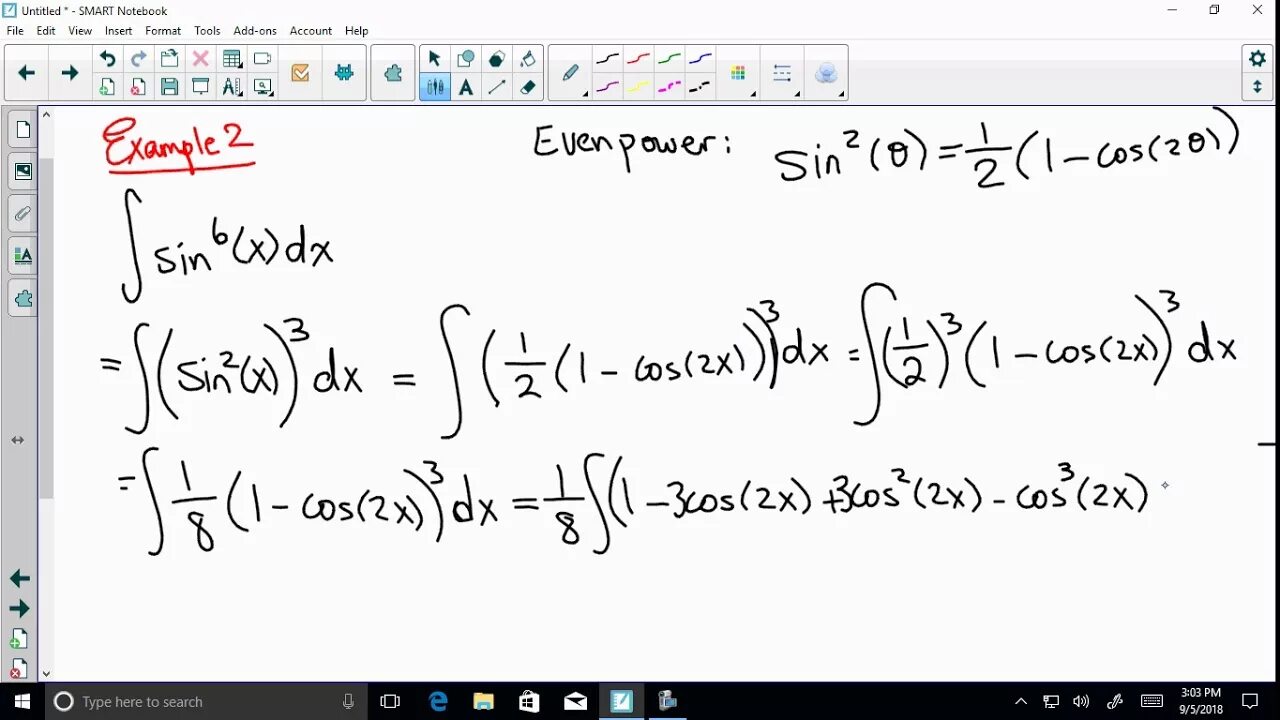 Untitled * - SMART Notebook
File Edit View Insert Format Tools Add-ons Account Help
Example 2
Even power: sin²(θ) = 1/2 (1 - cos(2θ))
∫ sin⁶(x) dx
= ∫ (sin²(x))³ dx = ∫ (1/2 (1 - cos(2x)))³ dx = ∫ (1/2)³ (1 - cos(2x))³ dx
= ∫ 1/8 (1 - cos(2x))³ dx = 1/8 ∫ (1 - 3cos(2x) + 3cos²(2x) - cos³(2x)
Type here to search
3:03 PM
9/5/2018